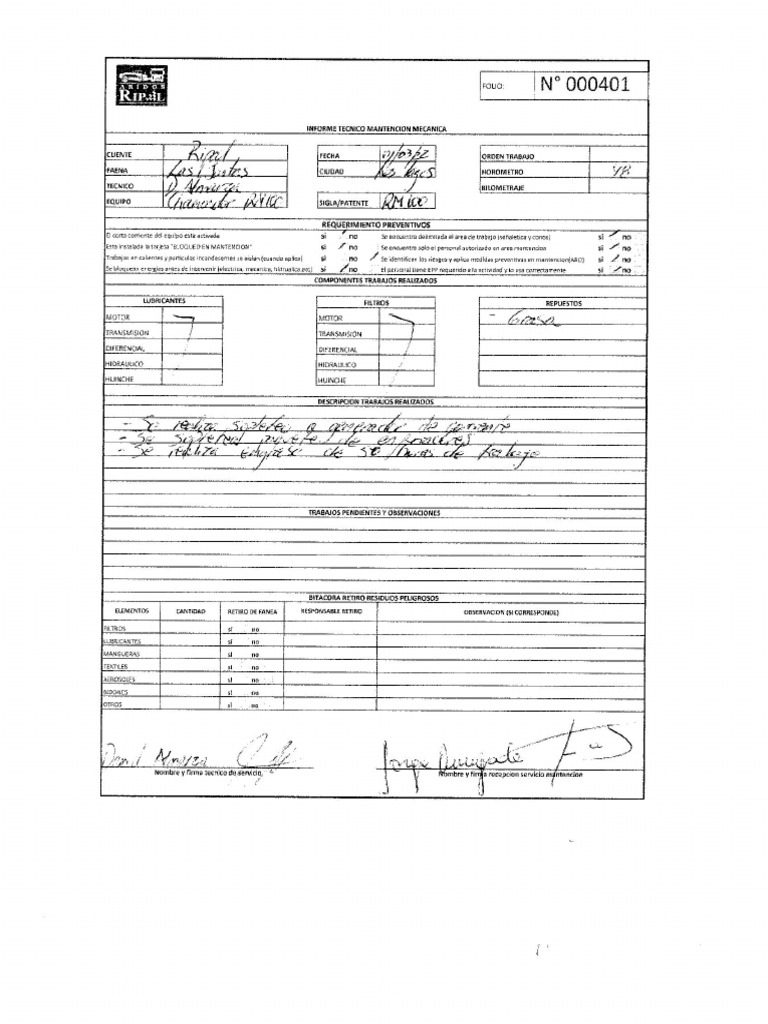 ARIDOS
RIPAL
FOLIO: N° 000401
INFORME TECNICO MANTENCION MECANICA
CLIENTE Ripal FECHA ORDEN TRABAJO
FAENA Las Juntas CIUDAD Los HOROMETRO
TECNICO D. Almarza KILOMETRAJE
EQUIPO Chancador RM100 SIGLA/PATENTE RM100
REQUERIMIENTO PREVENTIVOS
El corta corriente del equipo esta activado si / no Se encuentra delimitada el area de trabajo (señaletica y conos) si / no
Esta instalada la tarjeta "BLOQUEO EN MANTENCION" si / no Se encuentra solo el personal autorizado en area mantencion si / no
Trabajos en calientes y particulas incandecentes se aislan (cuando aplica) si no / Se identifican los riesgos y aplica medidas preventivas en mantencion(ARO) si / no
Se bloquean energias antes de intervenir (electrica, mecanica, hidraulica,etc) si / no El personal tiene EPP requerido a la actividad y lo usa correctamente si / no
COMPONENTES TRABAJOS REALIZADOS
LUBRICANTES FILTROS REPUESTOS
MOTOR MOTOR - Grasa
TRANSMISION TRANSMISION
DIFERENCIAL DIFERENCIAL
HIDRAULICO HIDRAULICO
HUINCHE HUINCHE
DESCRIPCION TRABAJOS REALIZADOS
- Se realiza sopleteo a generador de corriente
- Se de
- Se realiza engrase de 50 horas de trabajo
TRABAJOS PENDIENTES Y OBSERVACIONES
BITACORA RETIRO RESIDUOS PELIGROSOS
ELEMENTOS CANTIDAD RETIRO DE FANEA RESPONSABLE RETIRO OBSERVACION (SI CORRESPONDE)
FILTROS si no
LUBRICANTES si no
MANGUERAS si no
TEXTILES si no
AEROSOLES si no
BIDONES si no
OTROS si no
Almarza Jorge
Nombre y firma tecnico de servicio. Nombre y firma recepcion servicio mantencion